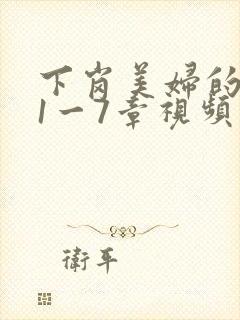 下岗美婦的
1一7章視頻
衛平